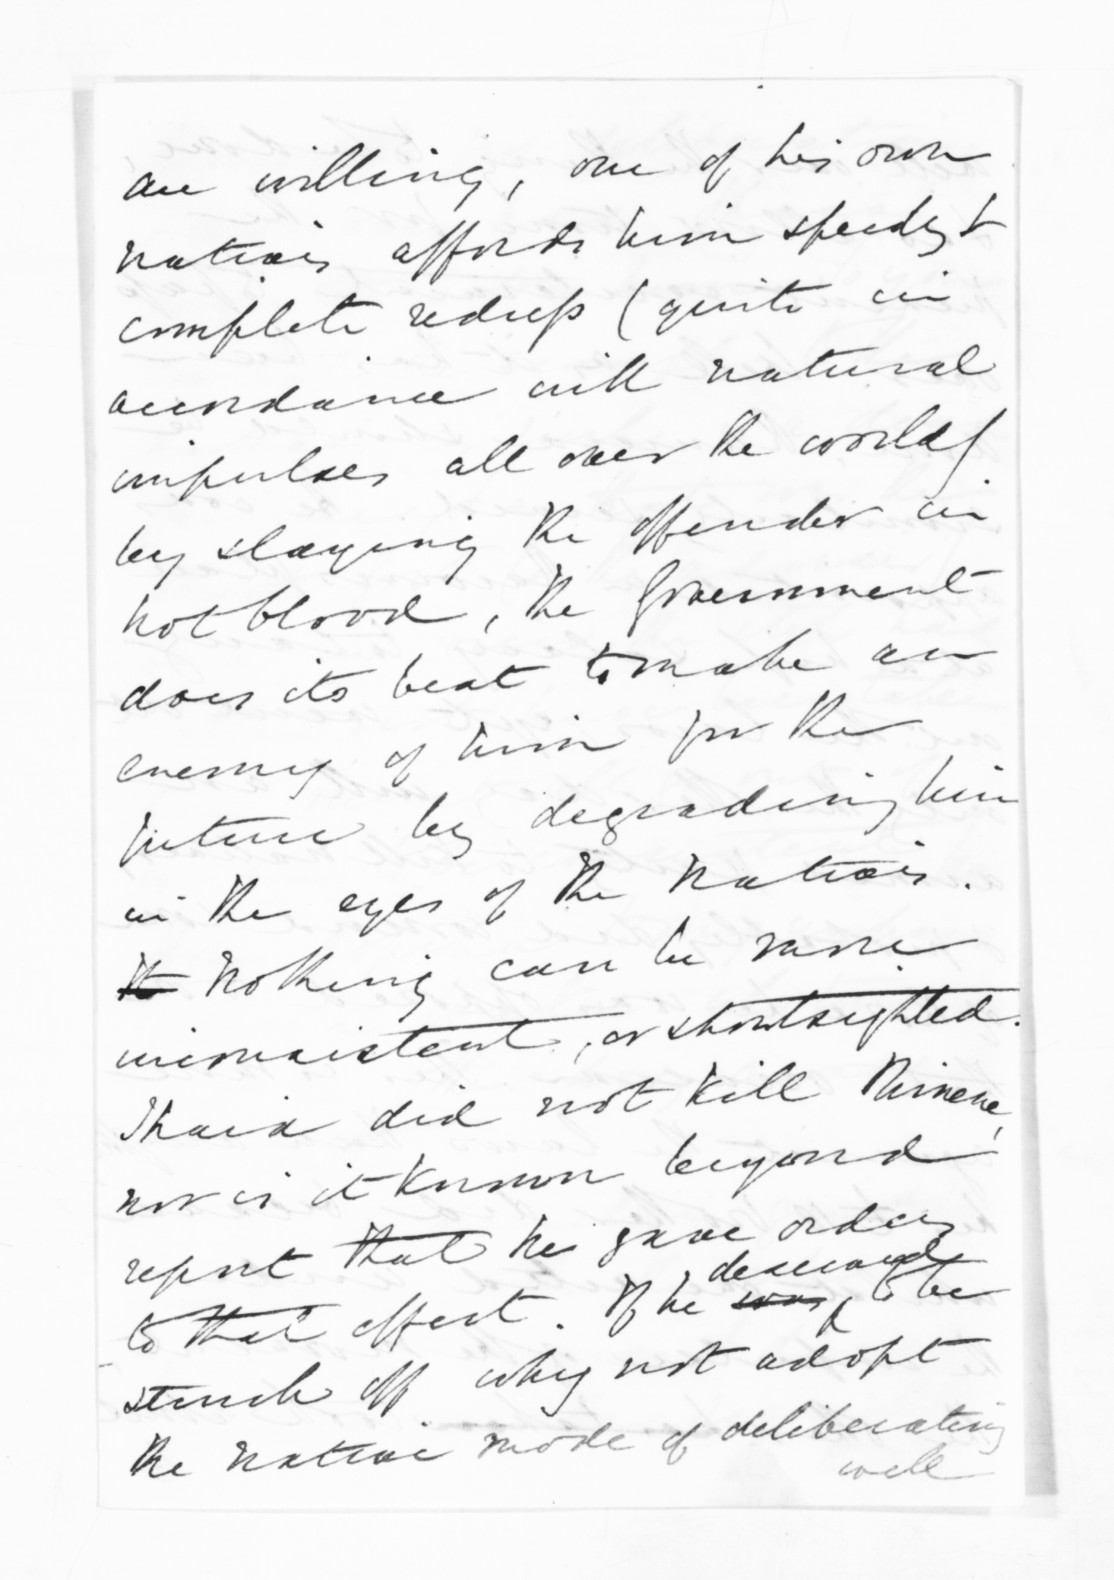 are willing, one of his own
natives affords him speedy &
complete redress (quite in
accordance with natural
impulses all over the world)
by slaying the offender in
hot blood, the Government
does its best to make an
enemy of him for the
future by degrading him
in the eyes of the natives.
It Nothing can be more
inconsistent, or shortsighted.
Ihaia did not kill Rimene,
nor is it known beyond
report that he gave orders
to that effect. If he was deserved to be
struck off why not adopt
the native mode of deliberating
well